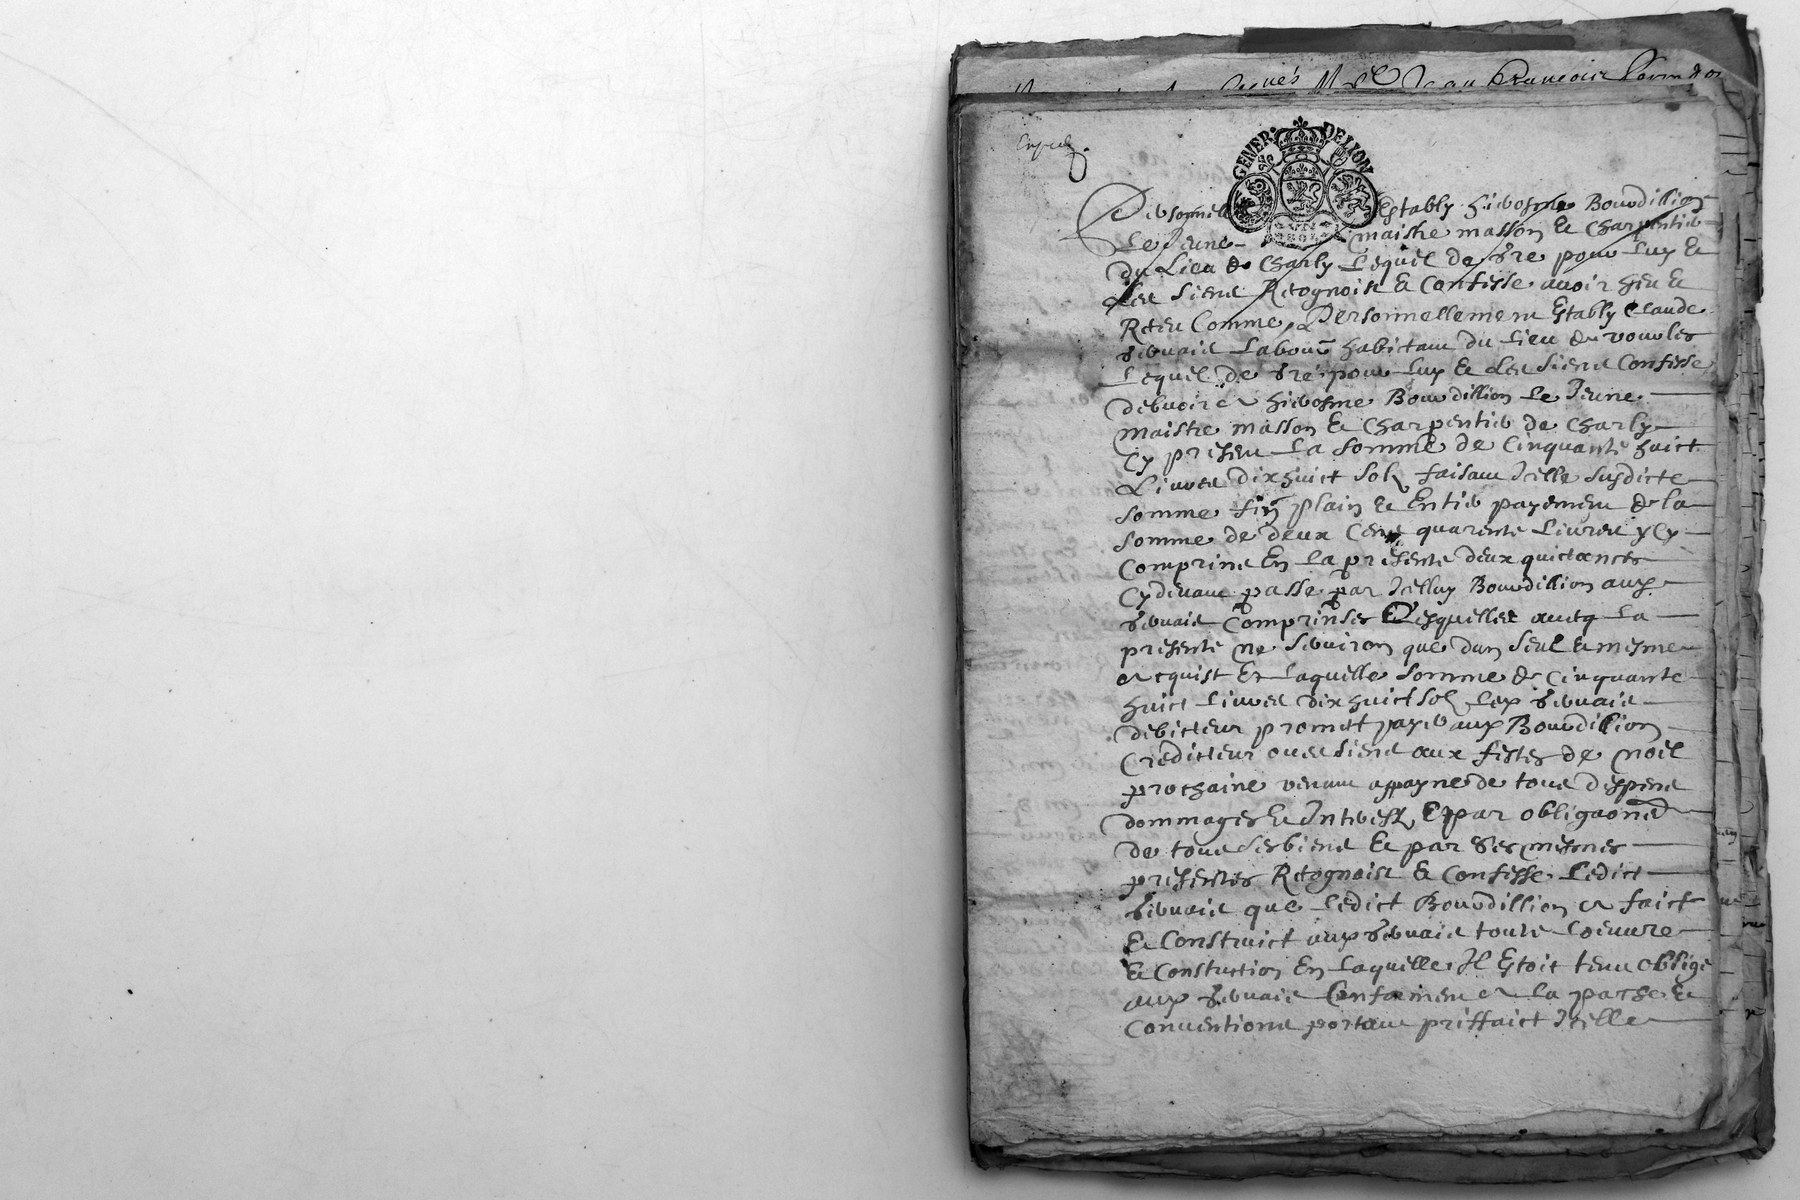 Jean Francois
GENER. DE LION
Personnelle Estably hierosme Bourdillion
Le Jeune maistre masson & Charpentier
du Lieu de Charly Lequel de gre pour Luy &
Les Siens Recognoist & Confesse avoir heu &
Receu Comme Personnellement Estably Claude
Labour habitant du Lieu de vourles
Lequel de gre pour Luy & Les Siens Confesse
debvoir a hierosme Bourdillion Le Jeune
maistre masson & Charpentier de Charly
Cy present La Somme de Cinquante huict
Livres dixhuict Solz faisant Icelle Susdicte
Somme fin plain & Entier payement de la
Somme de deux Cens quarente Livres y Cy
Comprins En La presente deux quictances
Cydevant passe par Icelluy Bourdillion aud
Comprinses Lesquelles avecq La
presente ne Serviront que dun Seul & mesme
acquist Et Laquelle Somme de Cinquante
huict Livres dixhuict Solz Led
debiteur promet payer aud Bourdillion
Crediteur ou es Siens aux festes de Noel
prochaine venant appayne de tous despens
dommages & Interestz Et par obligaon
de tous Ses biens & par Ses mesmes
presentes Recognoist & Confesse Ledict
que Ledict Bourdillion a faict
& Construict aud toute Loeuvre
& Constuction En Laquelle Il Estoit tenu oblige
aud Conformement a La pache &
Conventions portant priffaict Icelle